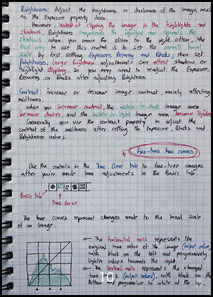 Brightness: Adjust the brightness or darkness of the image, much
as the Exposure property does.
However, instead of clipping the image in the highlights and
shadows, Brightness compresses the highlights and
when you move the slider to the right, often, the
best way to use this control is to set the
scale by first setting Exposure, Recovery and Blacks then set
Brightness. Large Brightness adjustments can affect shadows or
highlight clipping, so you may want to readjust the Exposure,
Recovery, or Blacks after adjusting Brightness.
Contrast: increase or decrease image contrast, mainly affecting
midtones.
When you increase contrast, the middle-to-dark image areas
become darker, and the middle-to-light image areas become lighter.
Generally you use the contrast property to adjust the
contrast of the midtones after setting the Exposure, Blacks and
Brightness values.
Fine-tune tone curves
Use the controls in the Tone Curve tab to fine-tune images
after you've made tone adjustments in the Basic tab.
Basic tab
Tone Curve
The tone curves represent changes made to the tonal scale
of an image.
The horizontal axis represents the
original tone value of the image (input value)
with black on the left and progressively
lighter values towards the right.
The vertical axis represents the changed
tone values (output values), with black on the
bottom and progressive to white at the top.
10